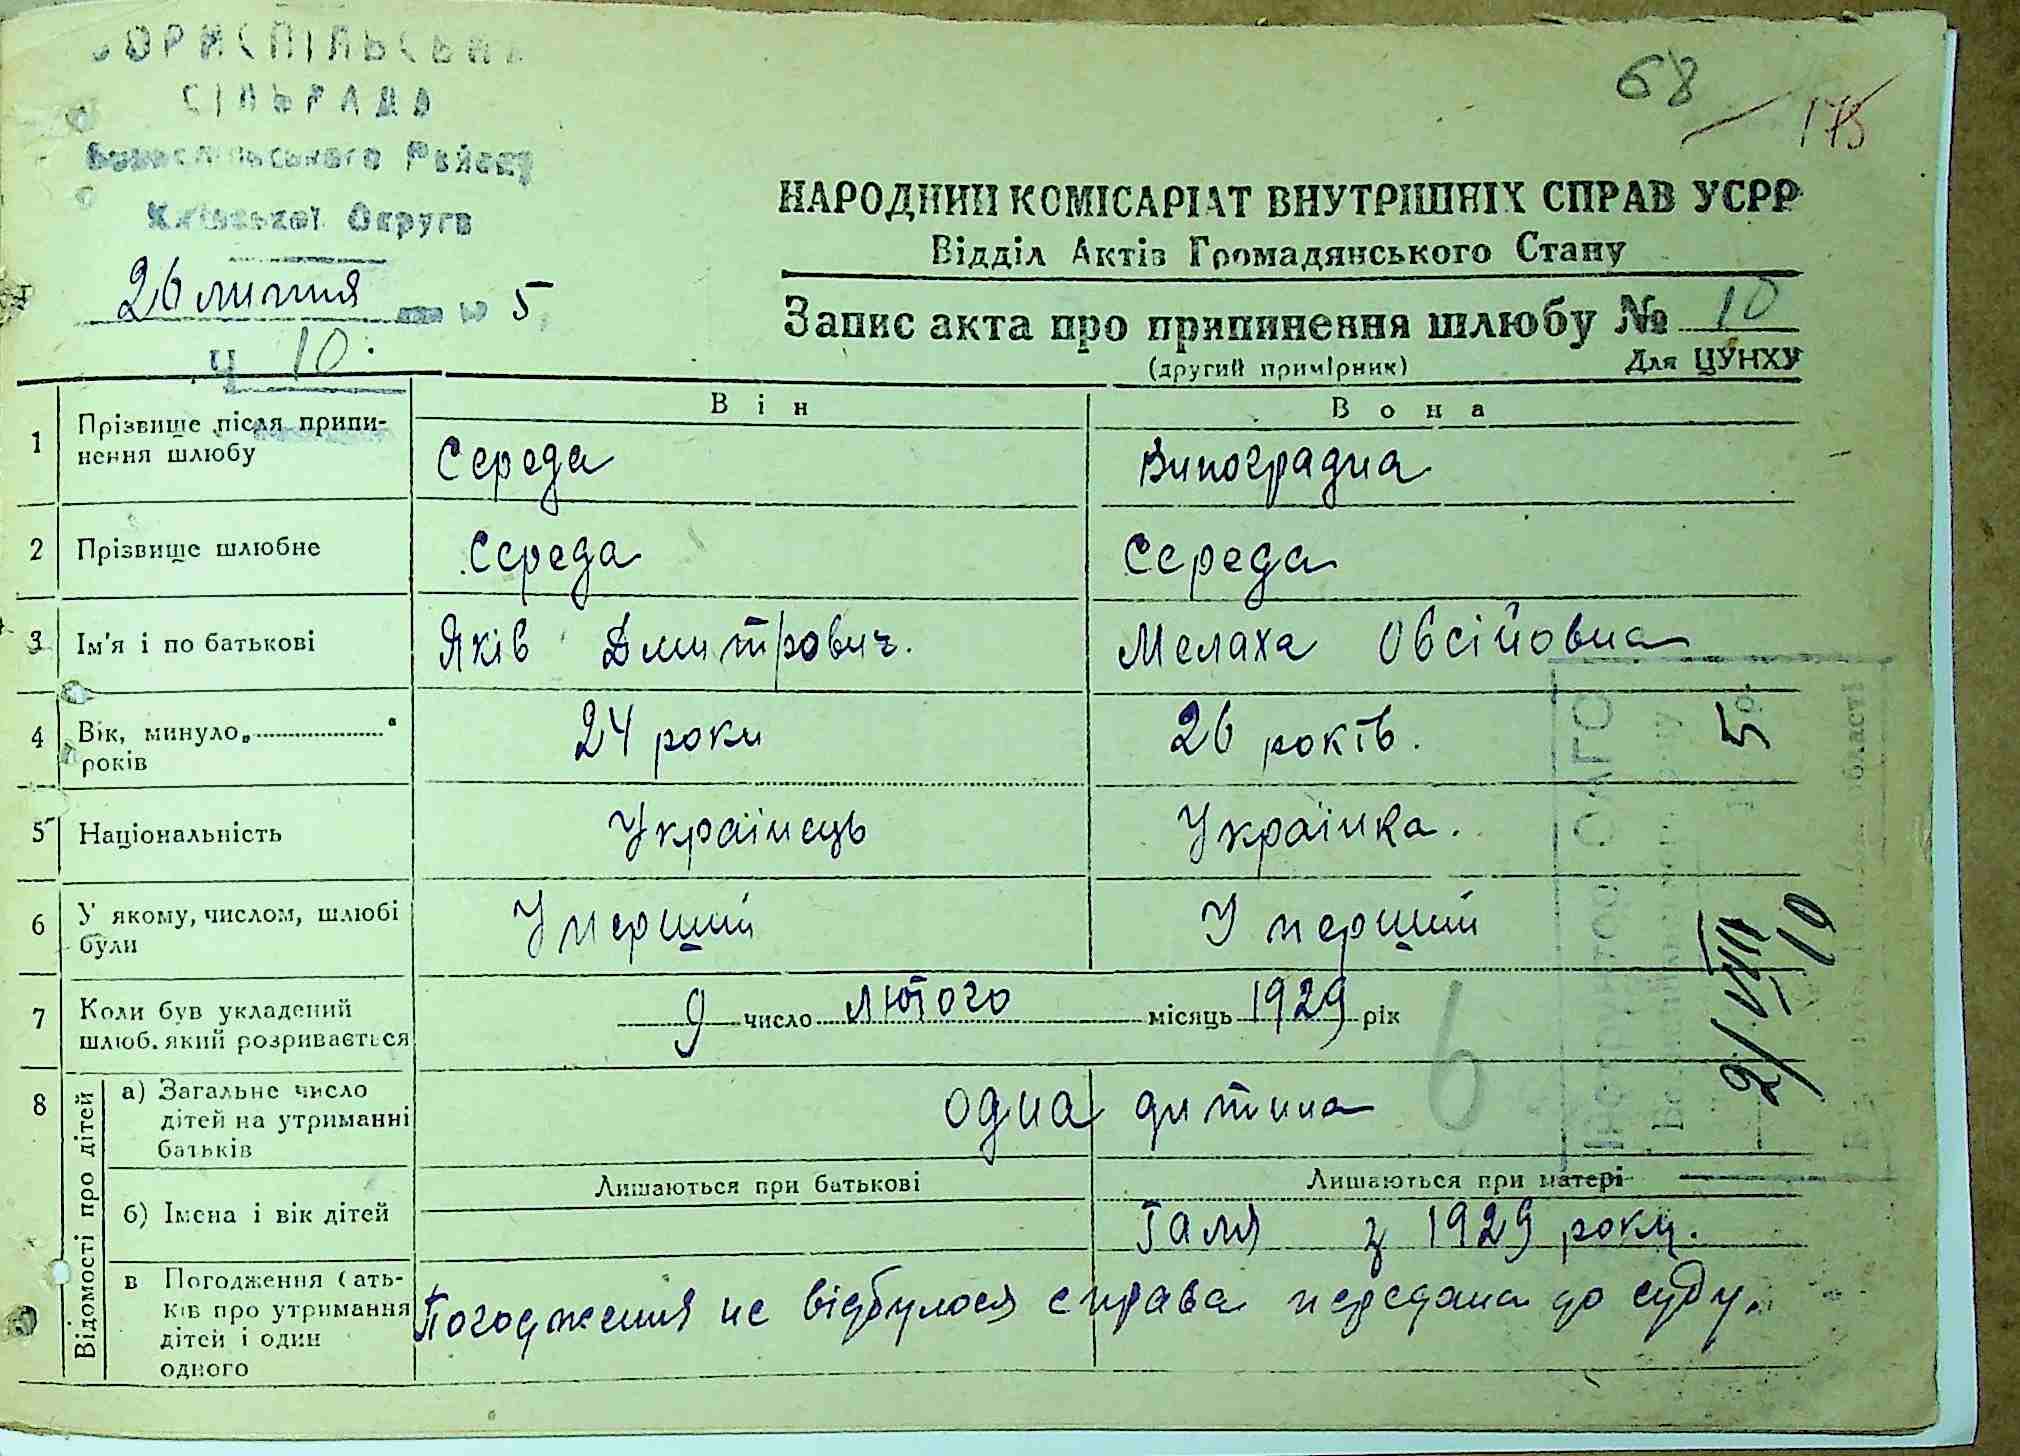 БОРИСПІЛЬСЬКА
СІЛЬРАДА
Бориспільського Району
Київської Округи
26 липня 5
Ч 10.
68
175
НАРОДНИЙ КОМІСАРІАТ ВНУТРІШНІХ СПРАВ УСРР
Відділ Актів Громадянського Стану
Запис акта про припинення шлюбу № 10
(другий примірник) Для ЦУНХУ
Він Вона
1 Прізвище після припи-
нення шлюбу Середа Виноградна
2 Прізвище шлюбне Середа Середа
3 Ім'я і по батькові Яків Дмитрович. Мелаха Овсійовна
4 Вік, минуло „ “
років 24 роки 26 років.
5 Національність Українець Українка.
6 У якому, числом, шлюбі
були У перший У перший
7 Коли був укладений
шлюб, який розривається 9 число лютого місяць 1929 рік
8 Відомості про дітей
а) Загальне число
дітей на утриманні
батьків одна дитина
6
Лишаються при батькові Лишаються при матері
б) Імена і вік дітей Галя з 1929 року.
в Погодження бать-
ків про утримання
дітей і один
одного Погодження не відбулося справа передана до суду.
5 р.
2/VIII
№ 10
області